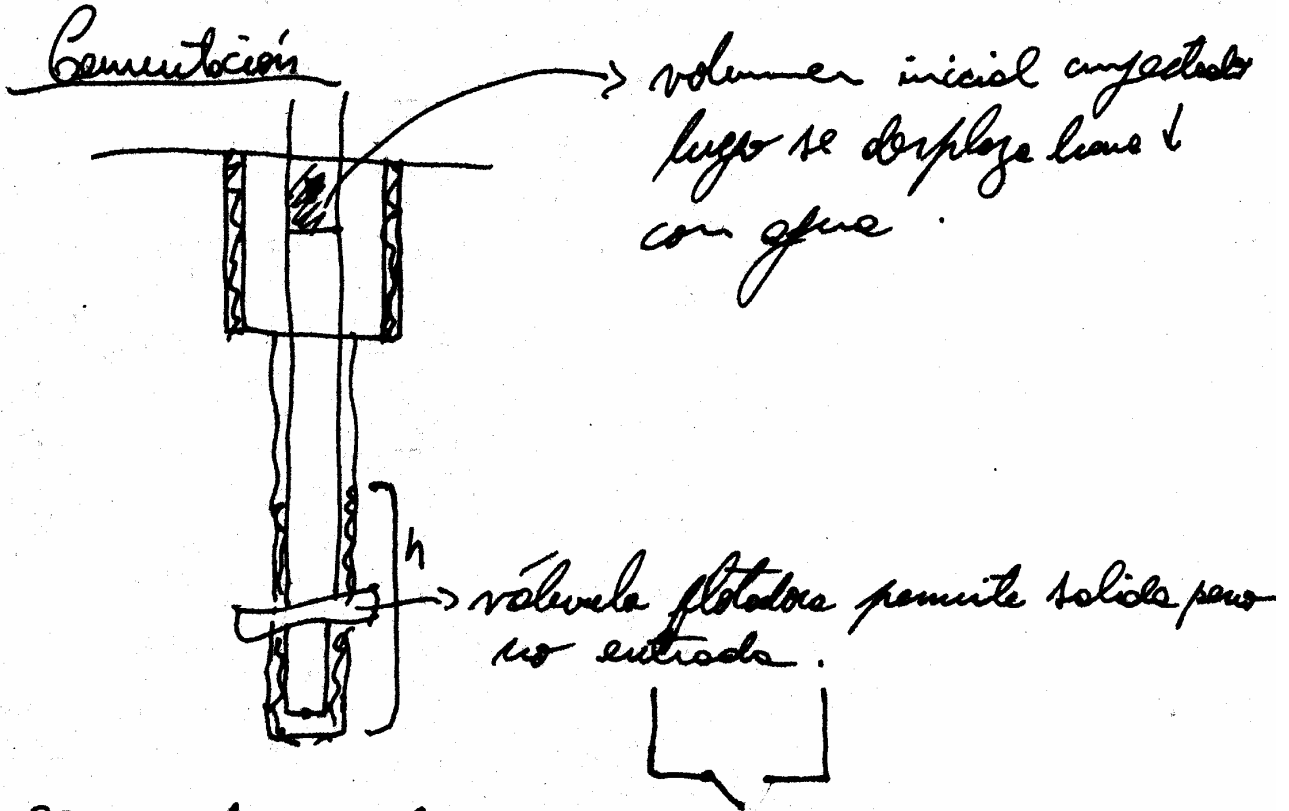 Cementación
volumen inicial inyectado
luego se desplaza hacia ↓
con agua.
h
válvula flotadora permite salida pero
no entrada.